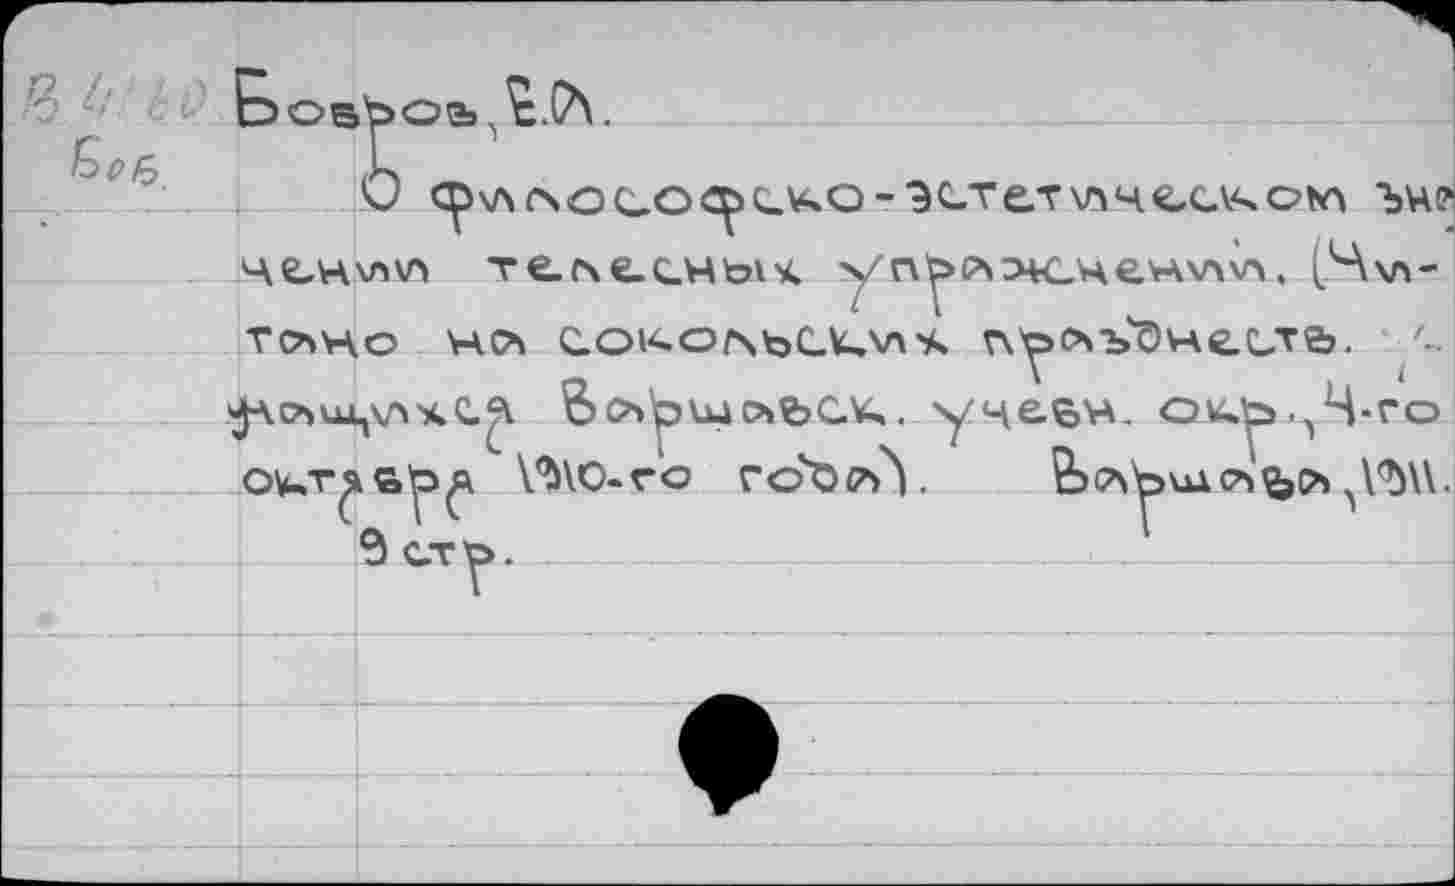 Бобров, Е.А.
Боб.
О философско-эстетическом зна
чении телесных упражнений. [Чи-
тано на сокольских празднеств.
учащихся Варшавск. учебн. окр., 4-го
октября 1910-го года]. Варшава, 1911.
9 стр.